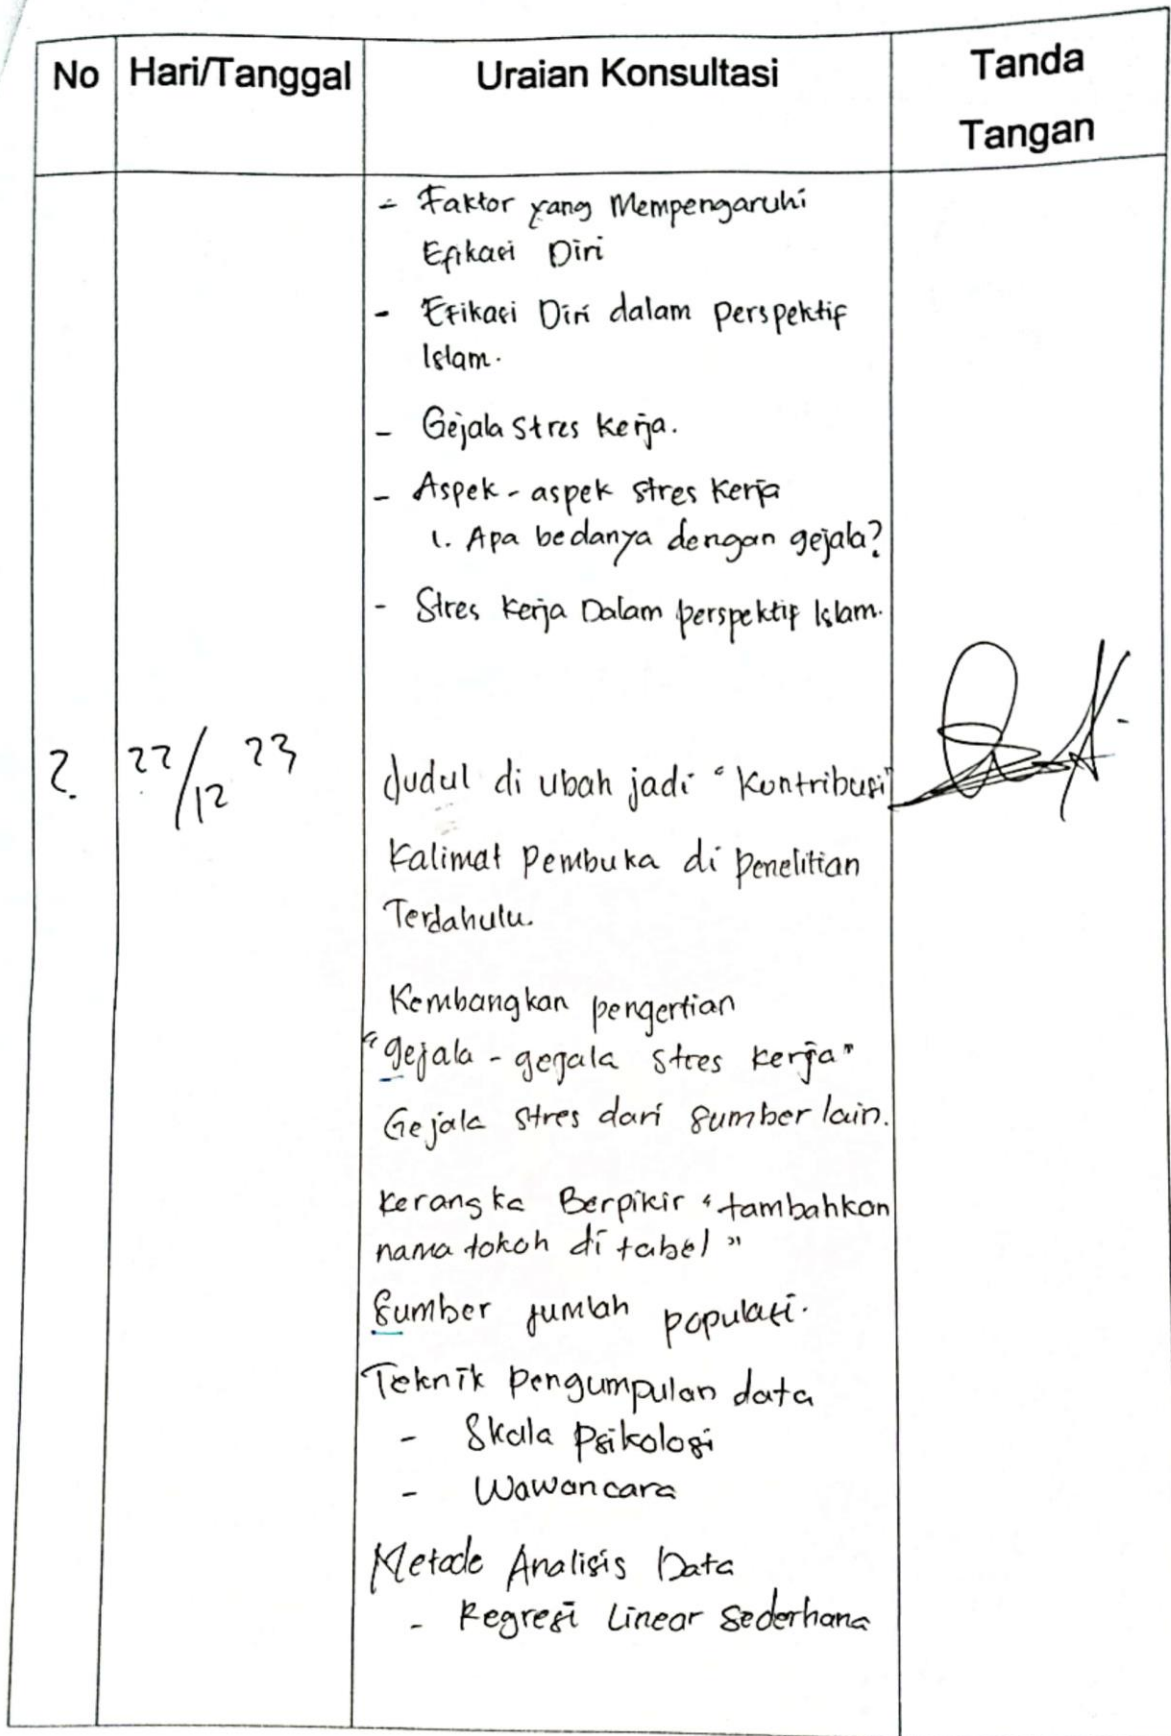 No Hari/Tanggal Uraian Konsultasi Tanda
Tangan
- Faktor yang Mempengaruhi
Efikasi Diri
- Efikasi Diri dalam Perspektif
Islam.
- Gejala Stres Kerja.
- Aspek - aspek stres Kerja
1. Apa bedanya dengan gejala?
- Stres Kerja Dalam perspektif Islam.
2. 22/12 23 Judul di ubah jadi "Kontribusi"
Kalimat Pembuka di penelitian
Terdahulu.
Kembangkan pengertian
"gejala - gegala stres kerja"
Gejala stres dari sumber lain.
Kerangka Berpikir "tambahkan
nama tokoh di tabel"
Sumber jumlah populasi.
Teknik Pengumpulan data
- Skala Psikologi
- Wawancara
Metode Analisis Data
- Regresi Linear Sederhana